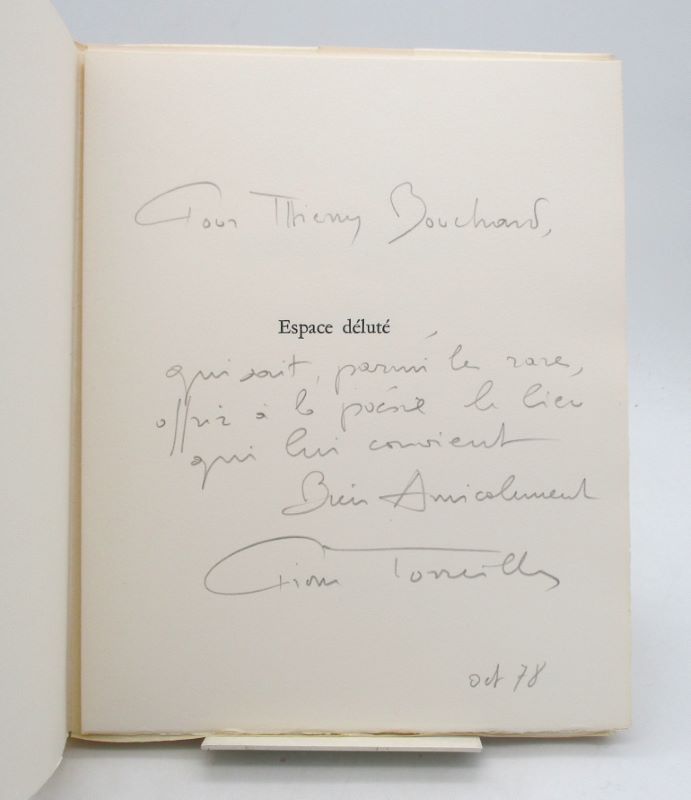 Pour Thierry Bouchard,
Espace déluté
qui sait, parmi les rares,
offrir à la poésie le lieu
qui lui convient
Bien Amicalement
Pierre Torreilles
oct 78